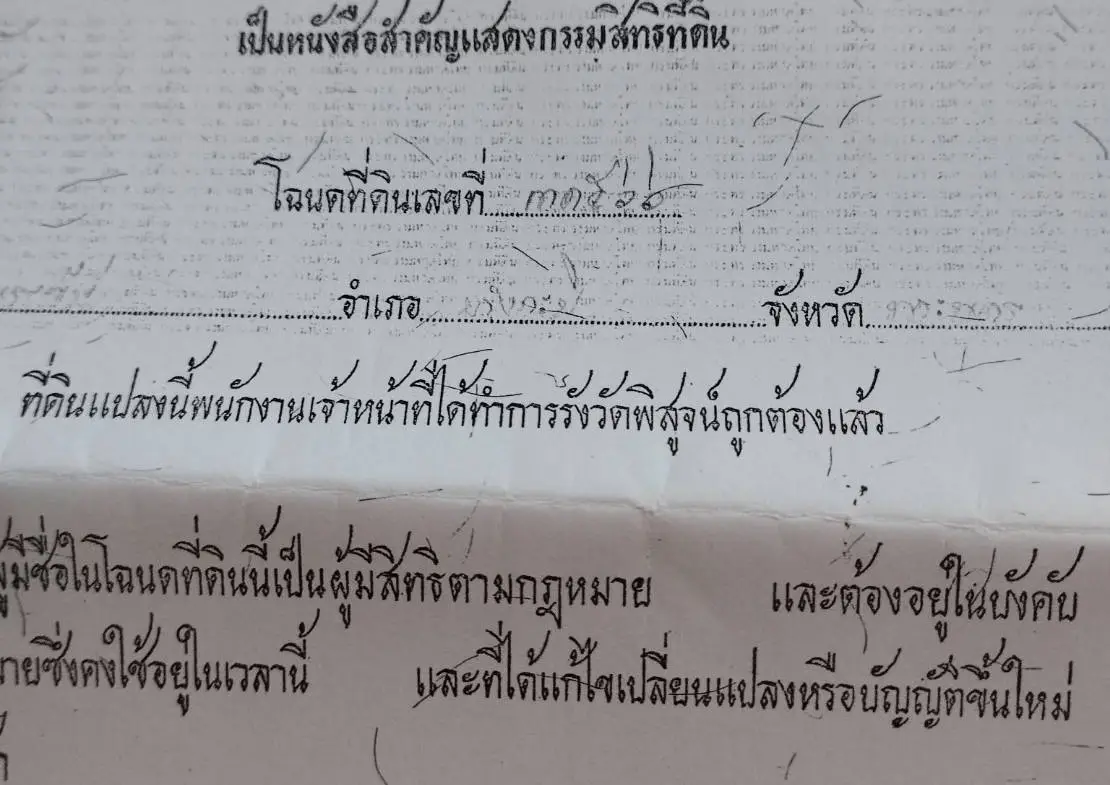 เป็นหนังสือสำคัญแสดงกรรมสิทธิที่ดิน
โฉนดที่ดินเลขที่
อำเภอ จังหวัด
ที่ดินแปลงนี้พนักงานเจ้าหน้าที่ได้ทำการรังวัดพิสูจน์ถูกต้องแล้ว
ผู้มีชื่อในโฉนดที่ดินนี้เป็นผู้มีสิทธิตามกฎหมาย และต้องอยู่ในบังคับ
ซึ่งคงใช้อยู่ในเวลานี้ และที่ได้แก้ไขเปลี่ยนแปลงหรือบัญญัติขึ้นใหม่